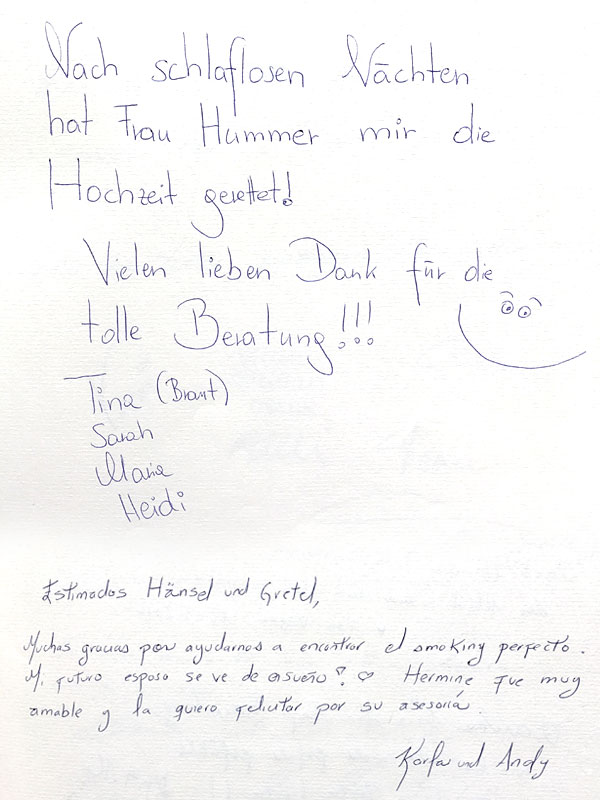 Nach schlaflosen Nächten
hat Frau Hummer mir die
Hochzeit gerettet!
Vielen lieben Dank für die
tolle Beratung!!!
Tina (Braut)
Sarah
Maria
Heidi
Estimados Hänsel und Gretel,
Muchas gracias por ayudarnos a encontrar el smoking perfecto.
Mi futuro esposo se ve de ensueño! ♡ Hermine fue muy
amable y la quiero felicitar por su asesoría.
Karla und Andy